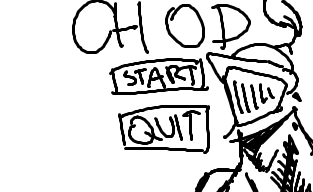 CHOD
START
QUIT